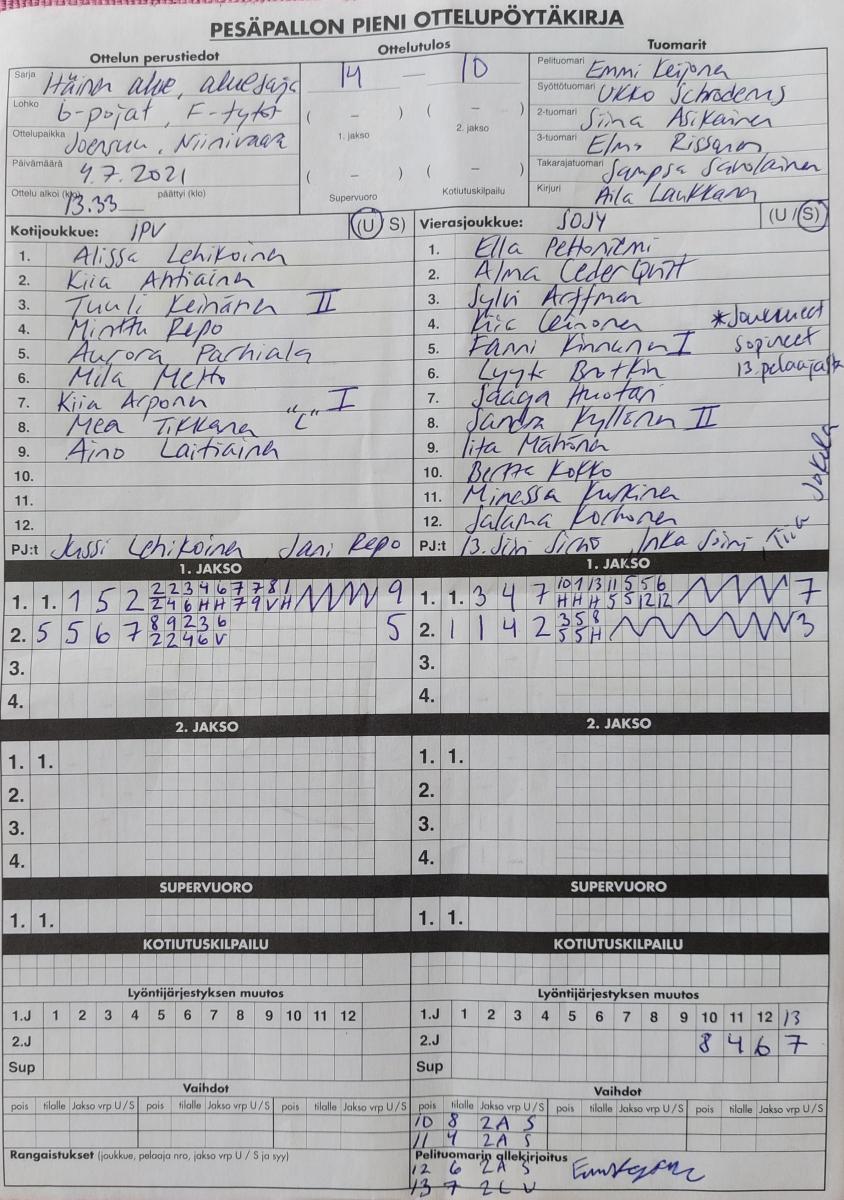 PESÄPALLON PIENI OTTELUPÖYTÄKIRJA
Ottelun perustiedot
Ottelutulos
Tuomarit
Sarja Häinen alue, aluesarja
Lohko b-pojat, F-tytöt
Ottelupaikka Joensuu, Niinivaara
Päivämäärä 4.7.2021
Ottelu alkoi (klo) 13.33 päättyi (klo)
14 — 10
( – ) ( – )
1. jakso 2. jakso
( – ) ( – )
Supervuoro Kotiutuskilpailu
Pelituomari Emmi Keijonen
Syöttötuomari Ukko Schroderus
2-tuomari Siina Asikainen
3-tuomari Elmo Rissanen
Takarajatuomari Sampsa Savolainen
Kirjuri Aila Laukkanen
Kotijoukkue: IPV (U S)
1. Alissa Lehikoinen
2. Kiia Ahtiainen
3. Tuuli Keinänen II
4. Minttu Repo
5. Aurora Parhiala
6. Mila Metto
7. Kiia Arponen "C" I
8. Mea Tikkanen
9. Aino Laitiainen
10.
11.
12.
PJ:t Jussi Lehikoinen, Jani Repo
Vierasjoukkue: SOJY (U / S)
1. Ella Peltoniemi
2. Alma Cederqvist
3. Sylvi Arffman
4. Kiia Leinonen
5. Fanni Kinnunen I
6. Lyyti Brotkin
7. Saaga Huotari
8. Sandra Kyllönen II
9. Iita Mähönen
10. Bertta Kokko
11. Minessa Kurkinen
12. Salama Korhonen
PJ:t 13. Siiri Sirniö Inka Soini, Tiia Jokela
*Joukkueet
sopineet
13. pelaajasta
1. JAKSO
1. 1. 1 5 2 2 2 3 4 6 7 7 8 1 9
2 4 6 H H 7 9 V H
2. 5 5 6 7 8 9 2 3 6 5
2 2 4 6 V
3.
4.
1. JAKSO
1. 1. 3 4 7 10 1 13 11 5 5 6 7
H H H 5 5 12 12
2. 1 1 4 2 3 5 8 3
5 5 H
3.
4.
2. JAKSO
1. 1.
2.
3.
4.
2. JAKSO
1. 1.
2.
3.
4.
SUPERVUORO
1. 1.
SUPERVUORO
1. 1.
KOTIUTUSKILPAILU
KOTIUTUSKILPAILU
Lyöntijärjestyksen muutos
1.J 1 2 3 4 5 6 7 8 9 10 11 12
2.J
Sup
Lyöntijärjestyksen muutos
1.J 1 2 3 4 5 6 7 8 9 10 11 12 13
2.J 8 4 6 7
Sup
Vaihdot
pois tilalle Jakso vrp U / S pois tilalle Jakso vrp U / S pois tilalle Jakso vrp U / S
Rangaistukset (joukkue, pelaaja nro, jakso vrp U / S ja syy)
Vaihdot
pois tilalle Jakso vrp U / S pois tilalle Jakso vrp U / S pois tilalle Jakso vrp U / S
10 8 2A S
11 4 2A S
Pelituomarin allekirjoitus
12 6 2A S
13 7 2L U